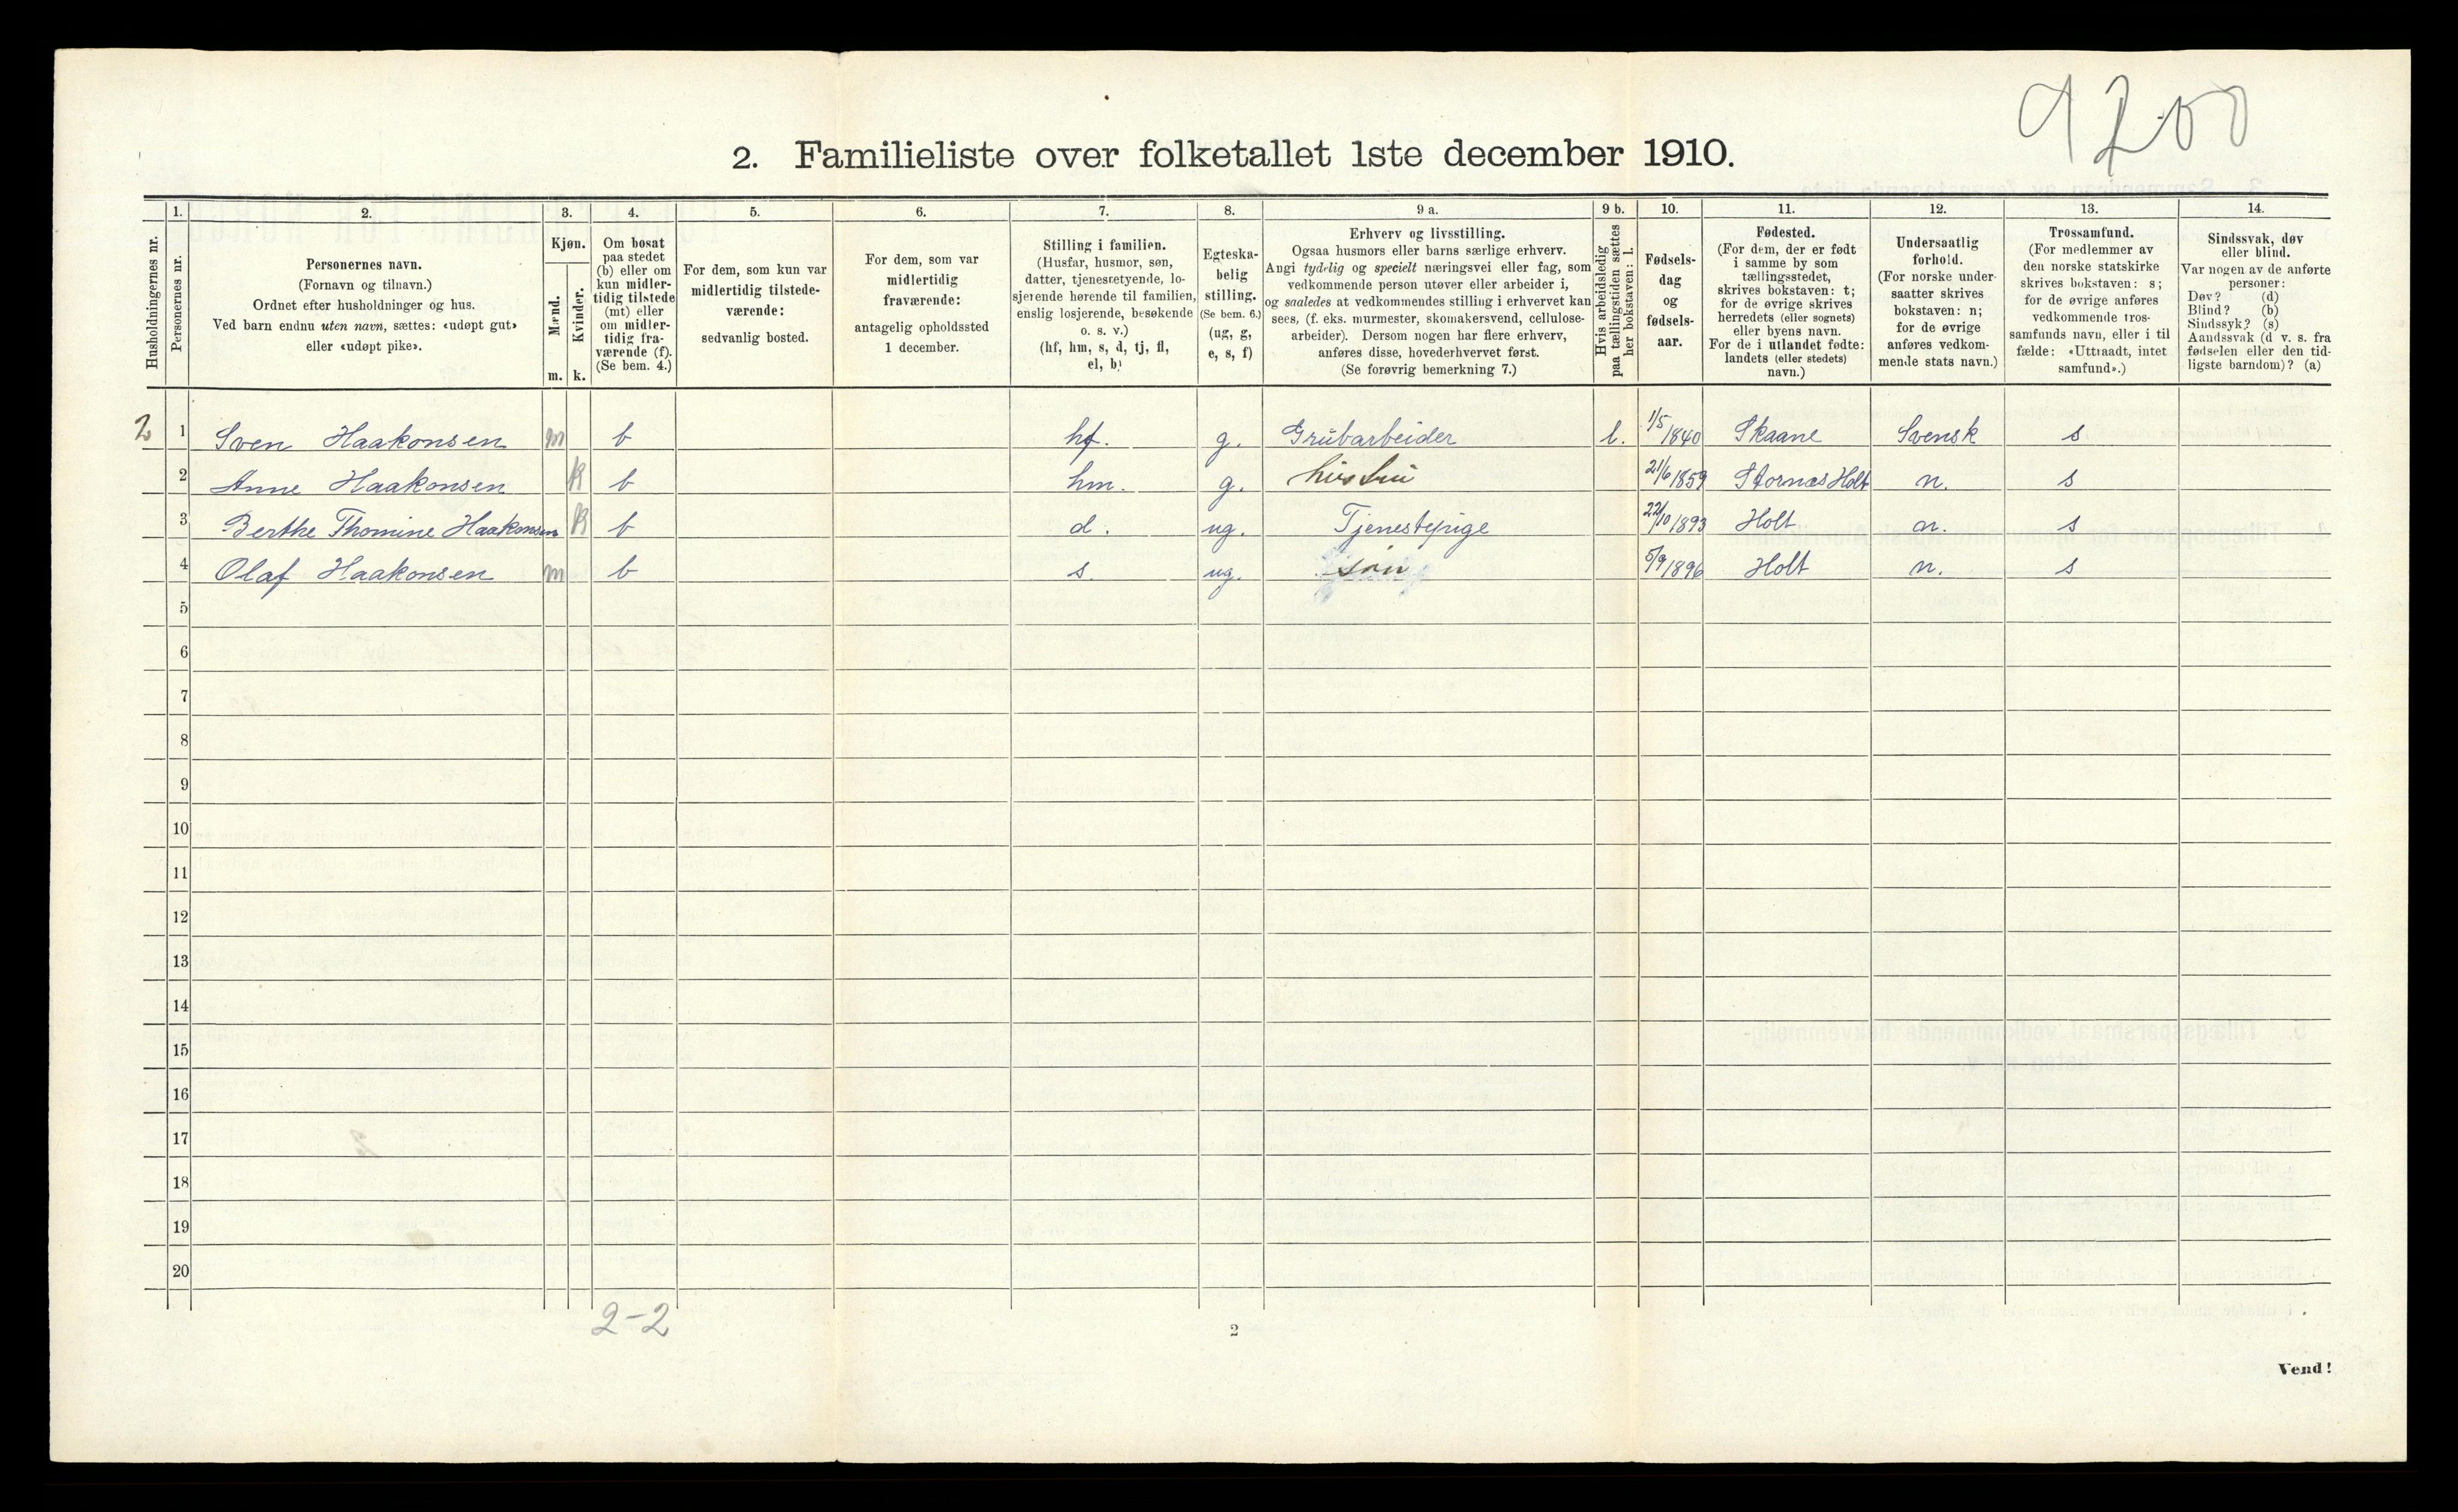 9200
2. Familieliste over folketallet 1ste december 1910.
Husholdningernes nr.
1. Personernes nr.
2.
Personernes navn.
(Fornavn og tilnavn.)
Ordnet efter husholdninger og hus.
Ved barn endnu uten navn, sættes: «udøpt gut»
eller «udøpt pike».
3.
Kjøn.
Mænd. Kvinder.
m. k.
4.
Om bosat
paa stedet
(b) eller om
kun midler-
tidig tilstede
(mt) eller
om midler-
tidig fra-
værende (f).
(Se bem. 4.)
5.
For dem, som kun var
midlertidig tilstede-
værende:
sedvanlig bosted.
6.
For dem, som var
midlertidig
fraværende:
antagelig opholdssted
1 december.
7.
Stilling i familien.
(Husfar, husmor, søn,
datter, tjenestetyende, lo-
sjerende hørende til familien,
enslig losjerende, besøkende
o. s. v.)
(hf, hm, s, d, tj, fl,
el, b)
8.
Egteska-
belig
stilling.
(Se bem. 6.)
(ug, g,
e, s, f)
9 a.
Erhverv og livsstilling.
Ogsaa husmors eller barns særlige erhverv.
Angi tydelig og specielt næringsvei eller fag, som
vedkommende person utøver eller arbeider i,
og saaledes at vedkommendes stilling i erhvervet kan
sees, (f. eks. murmester, skomakersvend, cellulose-
arbeider). Dersom nogen har flere erhverv,
anføres disse, hovederhvervet først.
(Se forøvrig bemerkning 7.)
9 b.
Hvis arbeidsledig
paa tællingstiden sættes
her bokstaven: l.
10.
Fødsels-
dag
og
fødsels-
aar.
11.
Fødested.
(For dem, der er født
i samme by som
tællingsstedet,
skrives bokstaven: t;
for de øvrige skrives
herredets (eller sognets)
eller byens navn.
For de i utlandet fødte:
landets (eller stedets)
navn.)
12.
Undersaatlig
forhold.
(For norske under-
saatter skrives
bokstaven: n;
for de øvrige
anføres vedkom-
mende stats navn.)
13.
Trossamfund.
(For medlemmer av
den norske statskirke
skrives bokstaven: s;
for de øvrige anføres
vedkommende tros-
samfunds navn, eller i til
fælde: «Uttraadt, intet
samfund».)
14.
Sindssvak, døv
eller blind.
Var nogen av de anførte
personer:
Døv? (d)
Blind? (b)
Sindssyk? (s)
Aandssvak (d v. s. fra
fødselen eller den tid-
ligste barndom)? (a)
2 1 Sven Haakonsen m b hf. g. Grubarbeider l. 1/5/1840 Skaane Svensk s
2 Anne Haakonsen k b hm. g. hustru 21/6 1859 Holt n. s
3 Berthe Thomine Haakonsen k b d. ug. Tjenestepige 22/10 1893 Holt n. s
4 Olaf Haakonsen m b s. ug. søn 5/9 1896 Holt n. s
5
6
7
8
9
10
11
12
13
14
15
16
17
18
19
20
2-2
2
Vend!